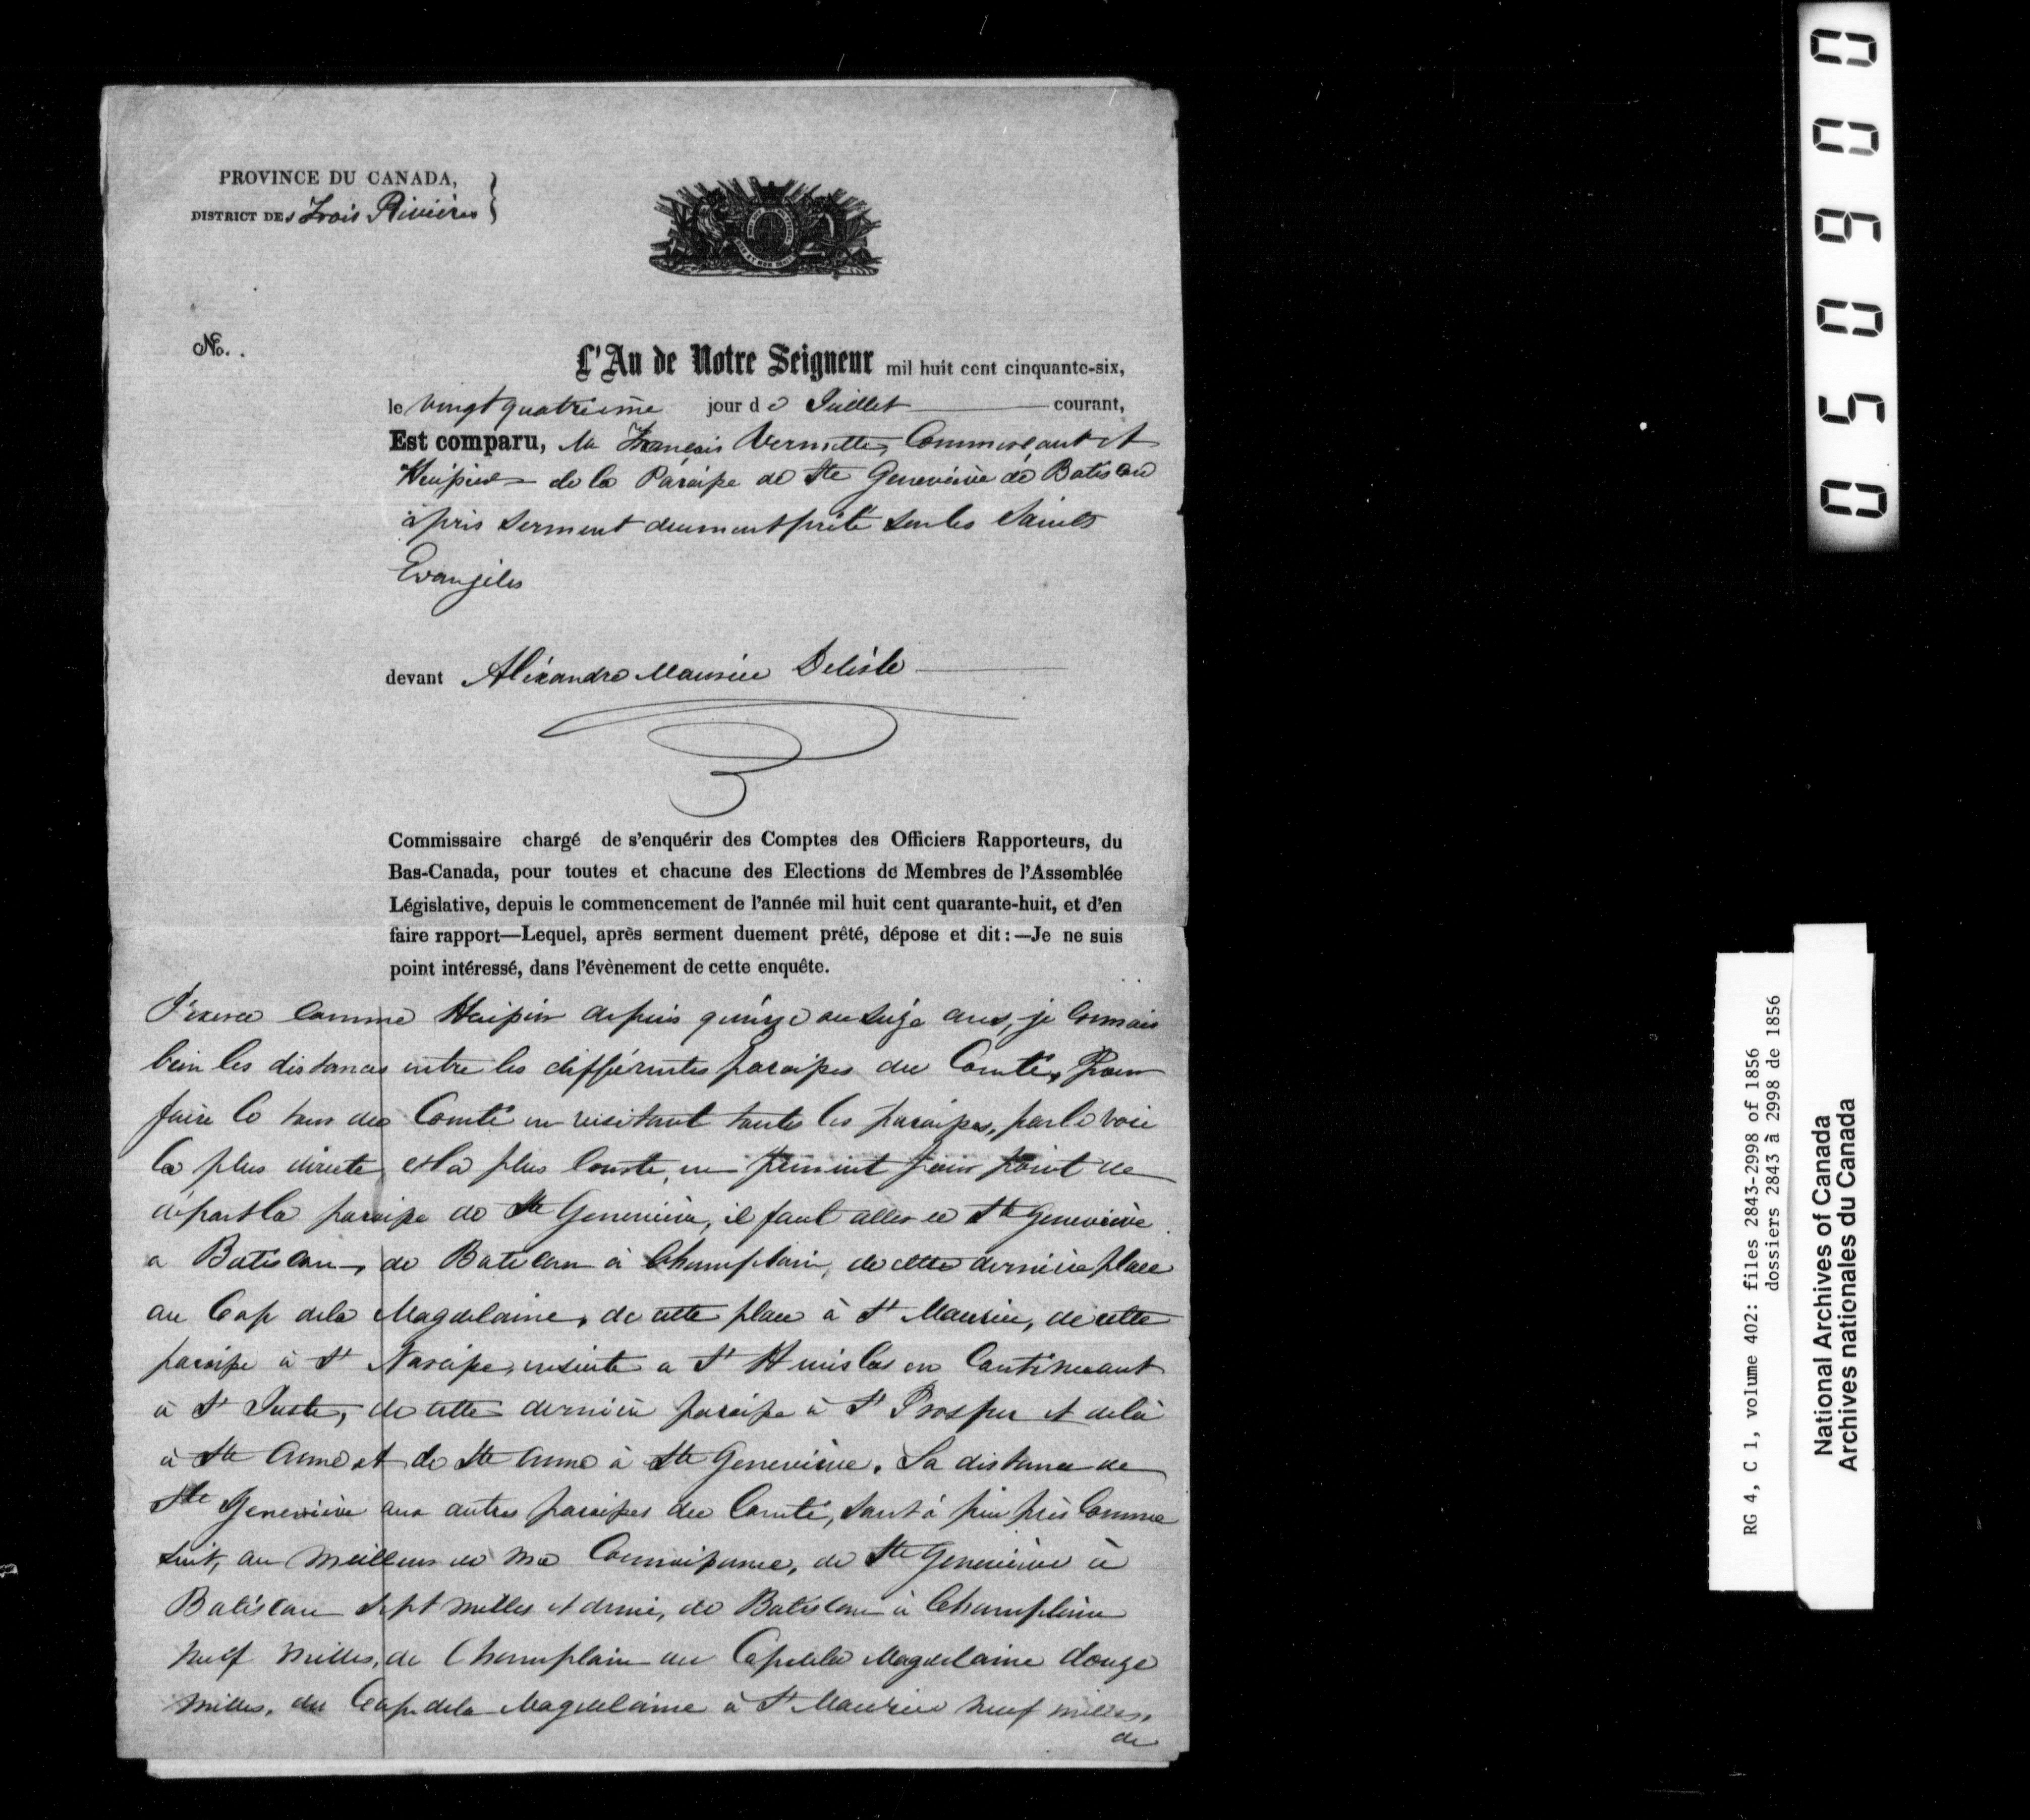 PROVINCE DU CANADA,
DISTRICT DEs Trois Rivières
No. .
L'An de Notre Seigneur mil huit cent cinquante-six,
le vingt quatrième jour de Juillet courant,
Est comparu, François Vermette, Commerçant et
Huissier de la Paroisse de Ste Geneviève de Batiscan
après serment duement prêté sur les Saints
Evangiles
devant Aléxandre Maurice Delisle
Commissaire chargé de s'enquérir des Comptes des Officiers Rapporteurs, du
Bas-Canada, pour toutes et chacune des Elections de Membres de l'Assemblée
Législative, depuis le commencement de l'année mil huit cent quarante-huit, et d'en
faire rapport—Lequel, après serment duement prêté, dépose et dit:—Je ne suis
point intéressé, dans l'évènement de cette enquête.
J'exerce comme Huissier depuis quinze ou seize ans, je connais
bien les distances entre les différentes paroisses du Comté, Pour
faire le tour du Comté en visitant toutes les paroisses, par la voie
la plus directe et la plus courte, en prenant pour point de
départ la paroisse de Ste Geneviève, il faut aller de Ste Geneviève
a Batiscan, de Batiscan à Champlain, de cette dernière place
au Cap dela Magdelaine, de cette place à St Maurice, de cette
paroisse à St Narcisse, ensuite a St Stanislas en Continuant
à St Juste, de cette dernière paroisse à St Prosper et delà
à Ste Anne et de Ste Anne à Ste Geneviève. La distance de
Ste Geneviève aux autres paroisses du Comté, sont à peu près Comme
suit, au meilleur de ma Connaissance, de Ste Geneviève à
Batiscan sept milles et demie, de Batiscan à Champlain
neuf milles, de Champlain au Cap dela Magdelaine douze
milles, du Cap dela Magdelaine à St Maurice neuf milles,
de
0 5 0 6 0 0
RG 4, C 1, volume 402: files 2843-2998 of 1856
dossiers 2843 à 2998 de 1856
National Archives of Canada
Archives nationales du Canada